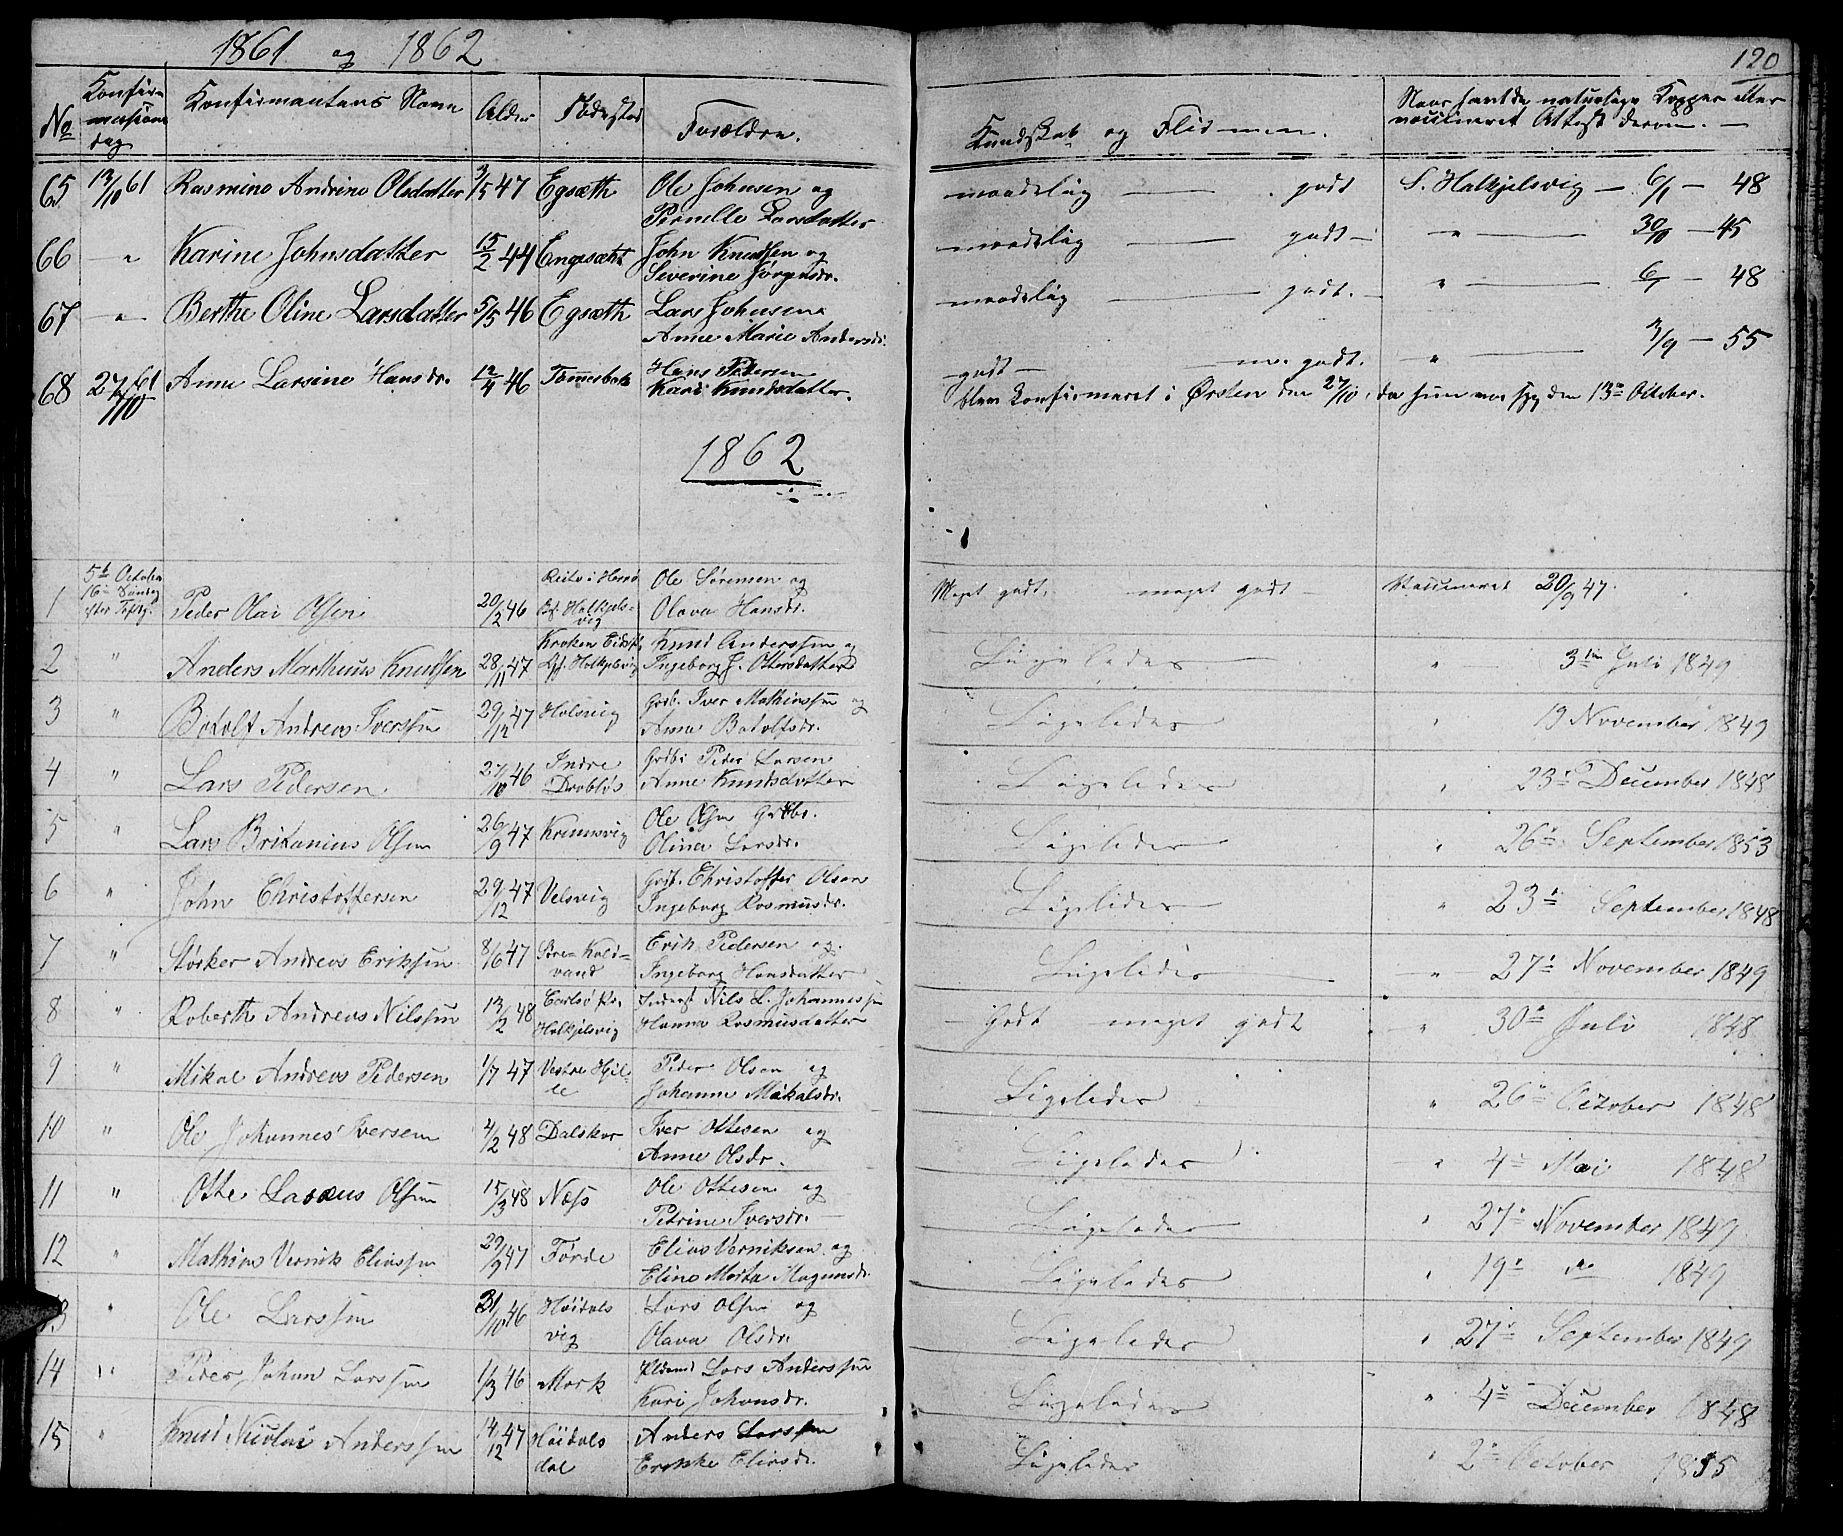 1861 og 1862
120
No Konfirmations dag Konfirmantens Navn Alder Fødested Forældre. Kundskab og Flid Naar havt de naturlige Kopper eller vaccineret Attest derom.
65 13/10 61 Rasmine Andrine Olsdatter 3/5 47 Egsæth Ole Johnsen og Pernille Larsdatter maadelig godt S. Halkjelsvig 6/1 - 48
66 " Karine Johnsdatter 15/2 44 Engesæth John Knudsen og Severine Jørgensdr. maadelig godt " 30/10 - 45
67 " Berthe Oline Larsdatter 5/5 46 Egsæth Lars Johnsen Anne Marie Andersdr. maadelig godt. " 6/1 - 48
68 27/10 61 Anne Larsine Hansdr. 12/4 46 Hans Pedersen Kari Knudsdatter. godt m. godt. " 3/9 - 55
blev konfirmeret i Ørsten den 27/10, da hun var syg den 13de October.
1862
1 5te October 16de Søndag efter Peder Olai Olsen 20/2 46 Halkjelsvig Ole Sørensen og Olava Hansdr. Meget godt, meget godt Vaccineret 20/9 47.
2 " Anders Marthinus Knudsen 28/11 47 Halkjelsvig Knud Anderssen og Ingeborg J. Ottersdatter Ligeledes " 3die Juli 1849
3 " Botolf Andreas Iverssen 29/12 47 Holsvig Grdb. Iver Mathiassen og Anne Botolfsdr. Ligeledes " 19 November 1849
4 " Lars Pedersen 27/10 46 Indre Drabløs Grdbr Peder Larsen Anne Knudsdatter Ligeledes " 23de December 1848
5 " Lars Britanius Olsen 26/9 47 Krumsvig Ole Olsen Grdbr. Olina Larsdr. Ligeledes " 26de September 1853
6 " John Christoffersen 29/12 47 Velsvig Grdb. Christoffer Olsen Ingeborg Rasmusdr. Ligeledes " 23de September 1848
7 " Størker Andreas Eriksen 8/6 47 Kaldvand Erik Pedersen og Ingeborg Hansdatter Ligeledes " 27de November 1849
8 " Roberth Andreas Nilssen 13/2 48 Halkjelsvig Nils L. Johannessen Hanna Rasmusdatter Godt meget godt " 30de Juli 1848
9 " Mikal Andreas Pedersen 1/7 47 Vestre Hjelle Peder Olsen og Johanne Mikalsdr. Ligeledes " 26de October 1848
10 " Ole Johannes Iversen 4/2 48 Dalskar Iver Ottesen og Anne Olsdr. Ligeledes " 4de Mai 1848
11 " Otte Lasseus Olsen 15/3 48 Næss Ole Ottesen og Petrine Iversdr. Ligeledes " 27de November 1849
12 " Mathias Vernik Eliassen 29/9 47 Førde Elias Verniksen og Eline Marta Magnusdr. Ligeledes " 19de do 1849
13 " Ole Larssen 31/10 46 Høidalsvig Lars Olsen og Olava Olsdr. Ligeledes " 27de September 1849
14 " Peder Johan Larssen 1/3 46 Mork Lars Anderssen Kari Johansdr. Ligeledes " 4de December 1848
15 " Knud Nicolai Anderssen 14/12 47 Høidalsdal Anders Larssen Erikke Eliasdr. Ligeledes " 2de October 1855